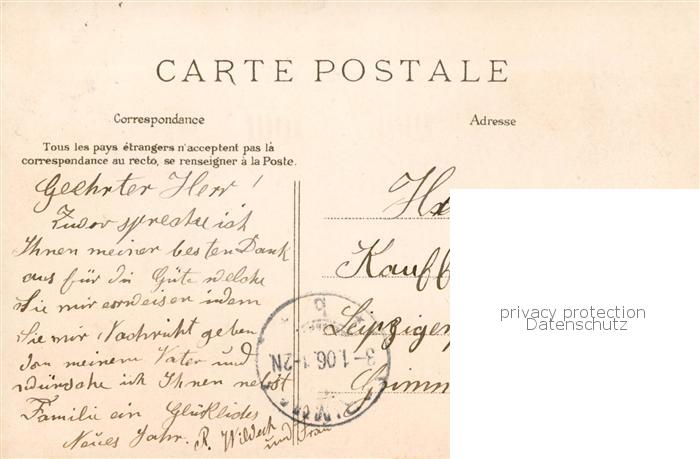 CARTE POSTALE
Correspondance
Adresse
Tous les pays étrangers n'acceptent pas la
correspondance au recto, se renseigner à la Poste.
Geehrter Herr!
Zuvor spreche ich
Ihnen meiner besten Dank
aus für die Güte welche
Sie mir erweisen indem
Sie mir Nachricht geben
von meinem Vater und
würsche ich Ihnen nebst
Familie ein Glückliches
Neues Jahr. R. Wildeck
und Frau
Kauff
Leipziger
Grimm
3-1.06.1-2N.
privacy protection
Datenschutz